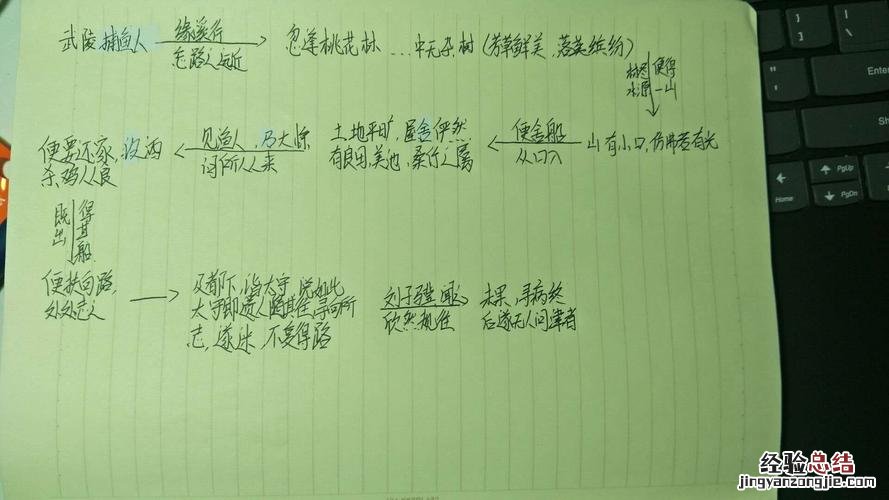 武陵捕鱼人
缘溪行
忘路之远近
忽逢桃花林…中无杂树(芳草鲜美,落英缤纷)
林尽
水源
便得
一山
山有小口,仿佛若有光
便舍船
从口入
土地平旷,屋舍俨然
有良田,美池,桑竹之属
见渔人,乃大惊
问所从来
便要还家,设酒
杀鸡作食
既出
得其船
便扶向路,
处处志之
及郡下,诣太守,说如此
太守即遣人随其往,寻向所
志,遂迷,不复得路
刘子骥闻之
欣然规往
未果,寻病终
后遂无人问津者
Enter
Shift
Home
PgUp
PgDn
End
经验总结
jingyanzongjie.com